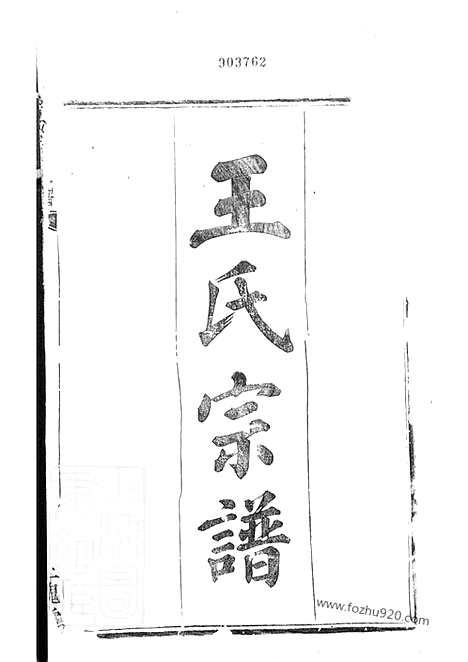 303762
王氏宗譜
www.fozhu920.com